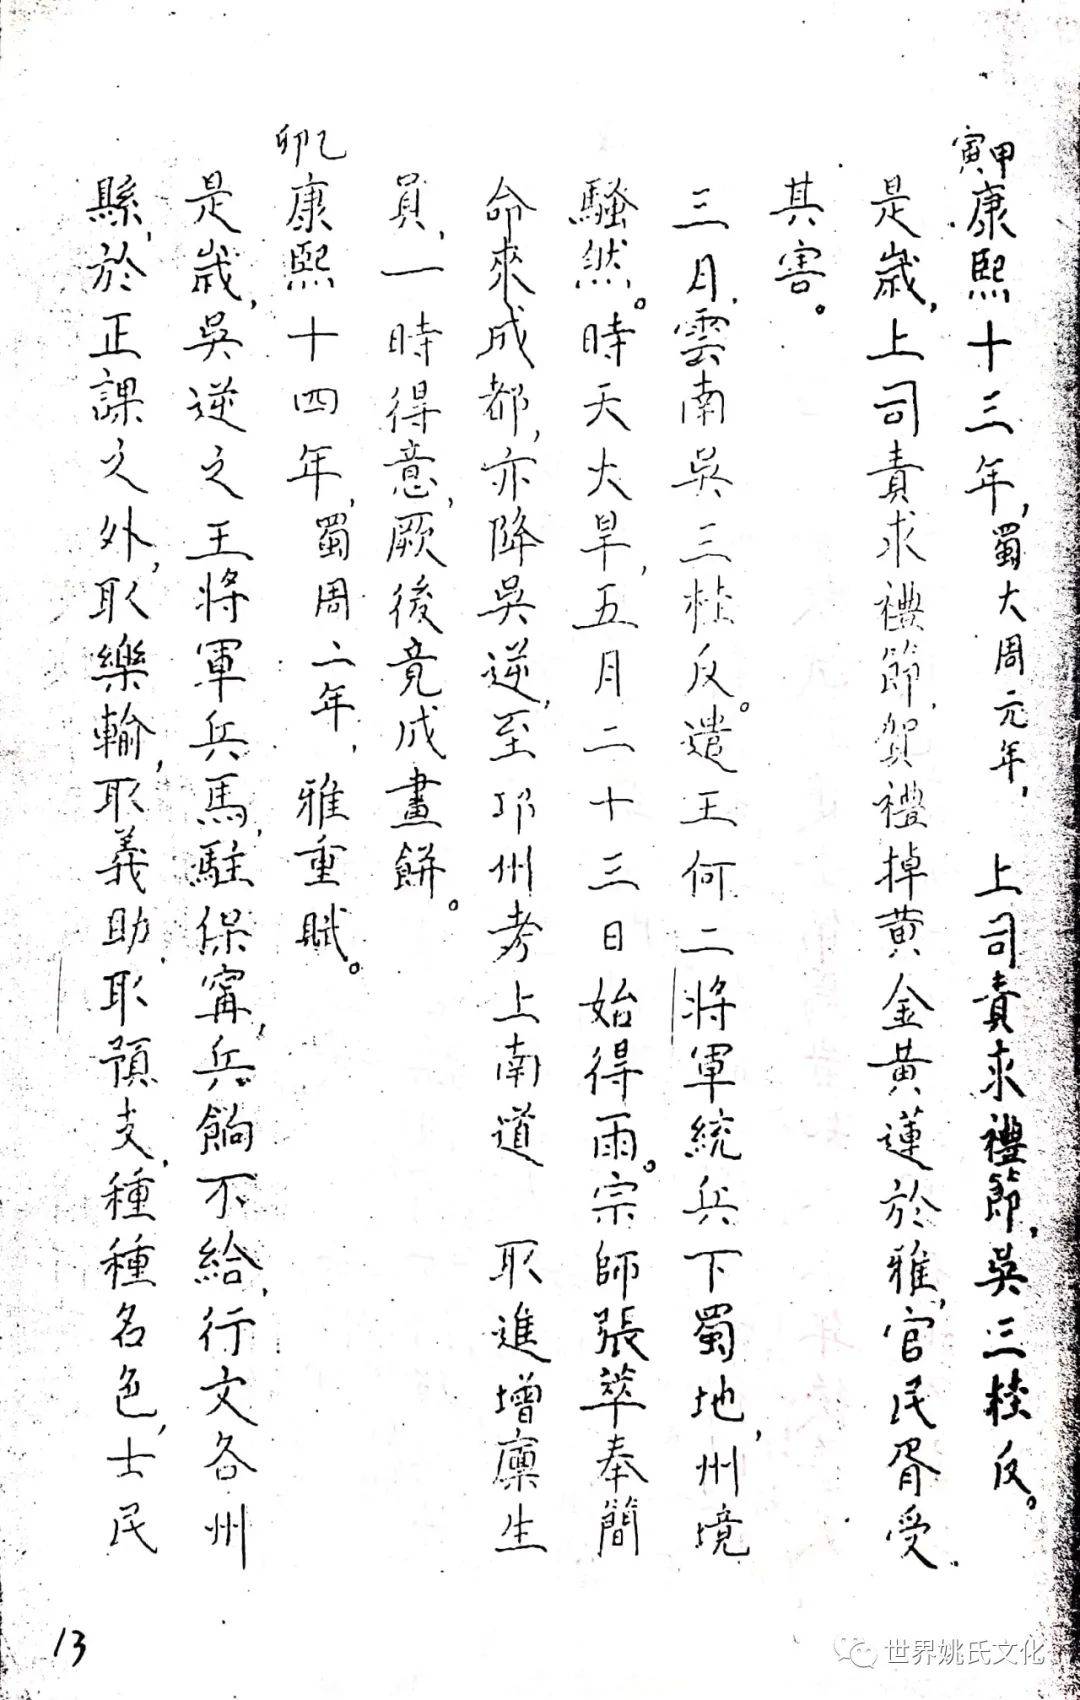 甲寅
康熙十三年,蜀大周元年, 上司責求禮節,吳三桂反。
是歲,上司責求禮節,賀禮掉黄金黃蓮於雅,官民胥受
其害。
三月,雲南吳三桂反。遣王何二將軍統兵下蜀地,州境
騷然。時天大旱,五月二十三日始得雨。宗師張萃奉簡
命來成都,亦降吳逆,至邛州考上南道 取進增廩生
員,一時得意,厥後竟成畫餅。
乙卯
康熙十四年,蜀周二年, 雅重賦。
是歲,吳逆之王將軍兵馬,駐保甯,兵餉不給,行文各州
縣,於正課之外,取樂輸,取義助,取預支,種種名色,士民
13
世界姚氏文化